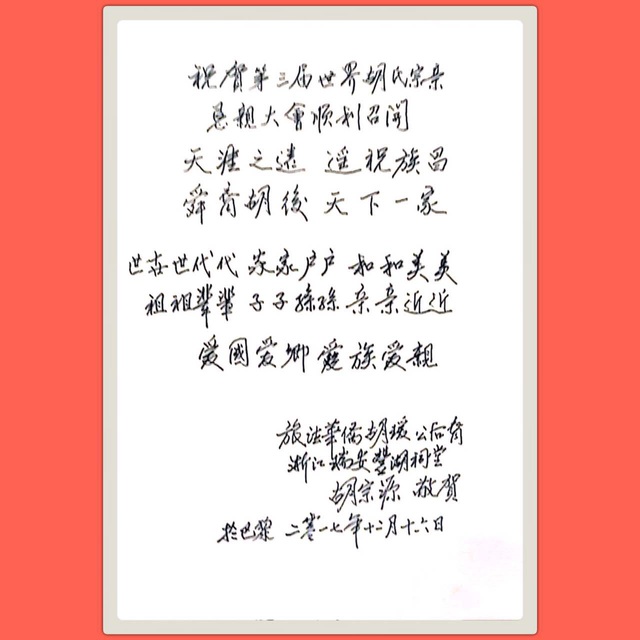 祝贺第三届世界胡氏宗亲
恳親大會顺利召開
天涯之遠 遥祝族昌
舜裔胡後 天下一家
世世世代代 家家户户 和和美美
祖祖輩輩 子子孫孫 亲亲近近
爱國爱鄉 愛族爱親
旅法華僑胡瑗公后裔
浙江瑞安豐湖祠堂
胡宗源 敬賀
於巴黎 二零一七年十二月十六日